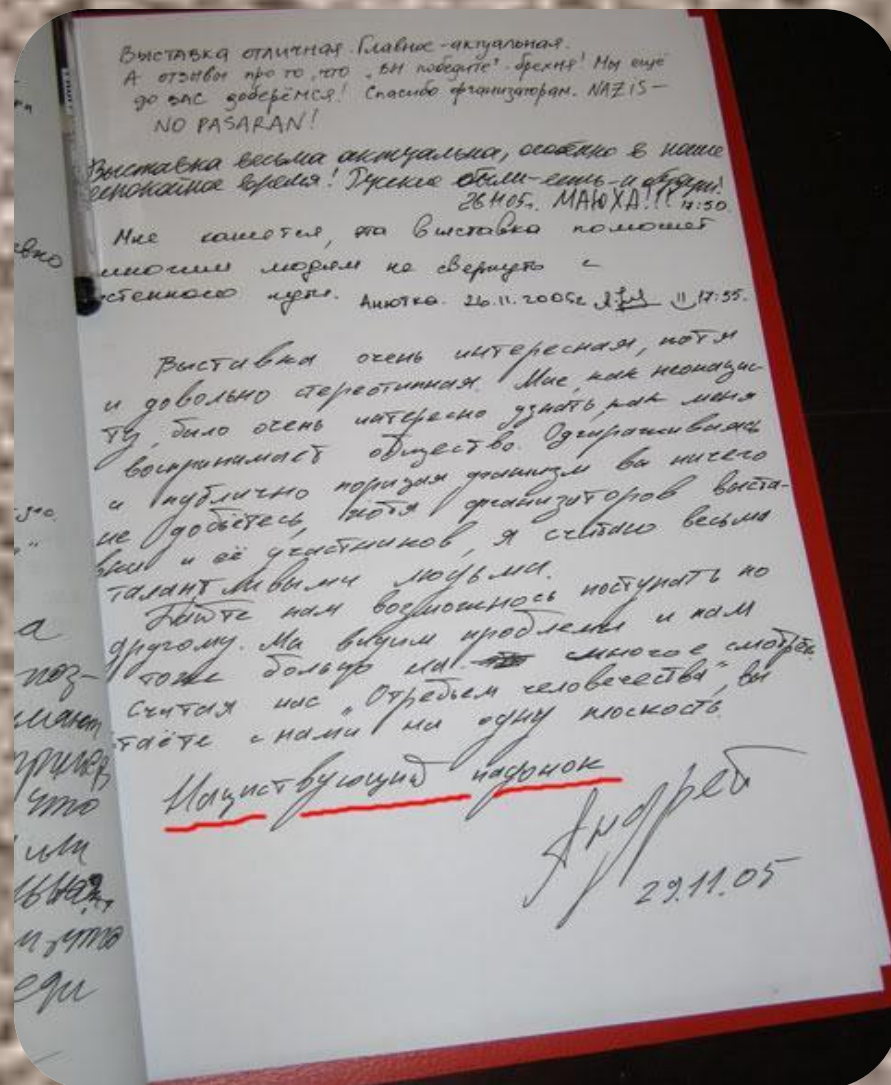 Выставка отличная. Главное - актуальная.
А отзывы про то, что „вы победите" - брехня! Мы ещё
до вас доберёмся! Спасибо организаторам. NAZIS —
NO PASARAN!
Выставка весьма актуальна, особенно в наше
еспокойное время! Русские были-есть-и будут!
26.11.05г. МАЮХА!!! 17:50.
Мне кажется, эта выставка поможет
многим людям не свернуть с
стенного пути. Анютка. 26.11.2005г 17:55.
Выставка очень интересная, хотя
и довольно стереотипная. Мне, как неонацис-
ту, было очень интересно узнать как меня
воспринимает общество.
и публично порицая вы ничего
не добьётесь, хотя организаторов выста-
вки и её участников, я считаю весьма
талантливыми людьми.
Дайте нам возможнось поступать по
другому. Мы видим проблемы и нам
тоже больно на многое смотреть
Считая нас „Отребьем человечества", вы
таёте с нами на одну плоскость.
Нациствующий падонок
Андрей
29.11.05
вно
а
поз-
что
или
еди